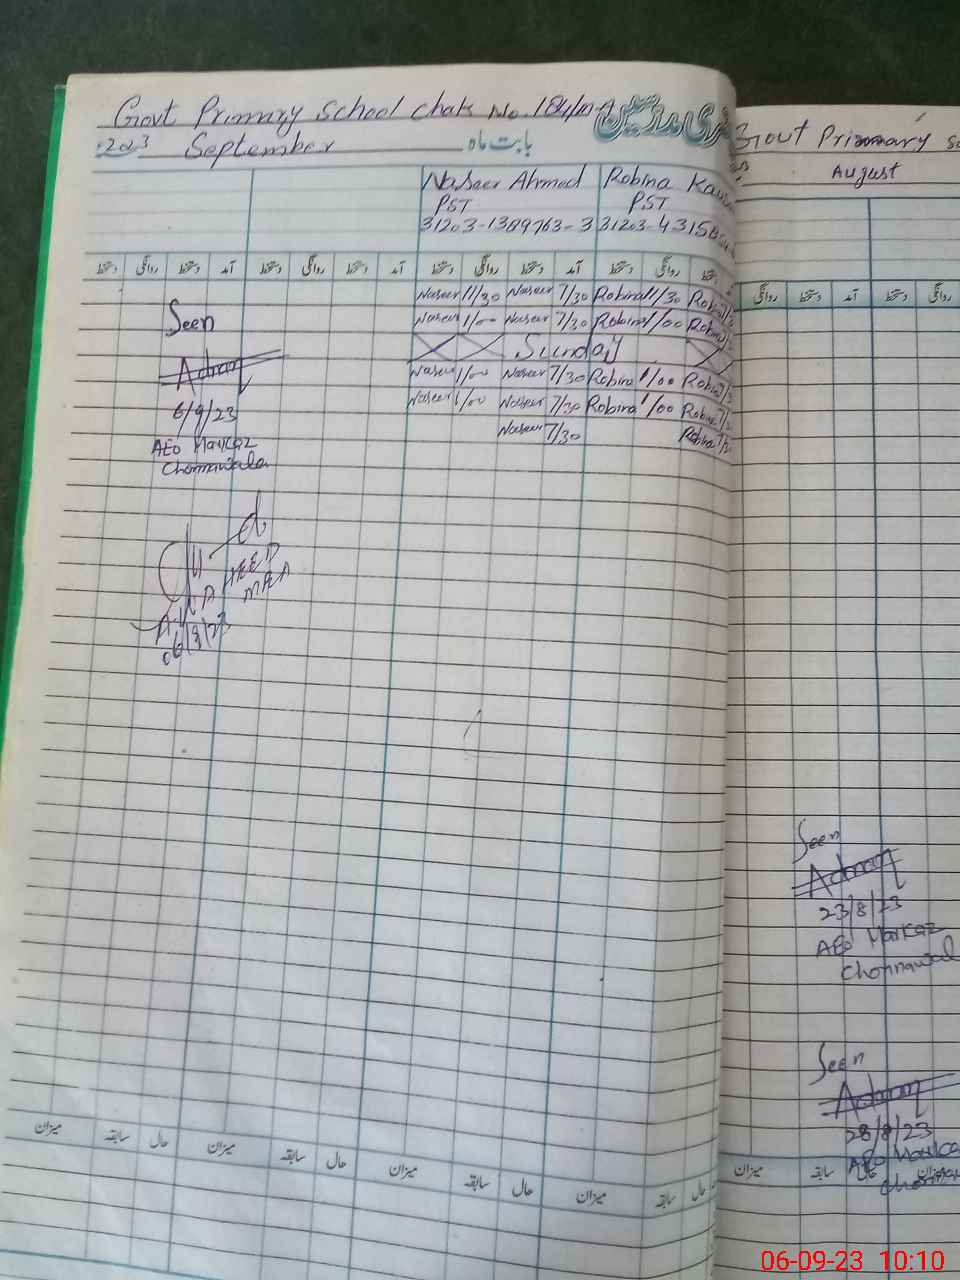 Govt Primary School Chak No. 184/M
حاضری مدرسین
2023 September بابت ماہ
Naseer Ahmed Robina
PST PST
31203-1389763-3 31203-4315
دستخط روانگی دستخط آمد دستخط روانگی دستخط آمد دستخط روانگی دستخط آمد دستخط روانگی دستخط
Naseer 11/30 Naseer 7/30 Robina 11/30 Robina
Naseer 1/00 Naseer 7/30 Robina 1/00 Robina
Sunday
Naseer 1/00 Naseer 7/30 Robina 1/00 Robina
Naseer 1/00 Naseer 7/30 Robina 1/00 Robina
Naseer 7/30 Robina
Seen
Adnan
6/9/23
AEO Markaz
Chonnawala
MEA
06/9/23
میزان سابقہ حال میزان سابقہ حال میزان سابقہ حال میزان سابقہ حال
Govt Primary
August
دستخط روانگی دستخط آمد دستخط روانگی
Seen
Adnan
23/8/23
AEO Markaz
Chonnawal
Seen
Adnan
28/8/23
AEO Marka
میزان سابقہ حال میزان
06-09-23 10:10